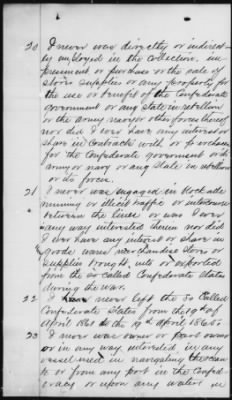 20 I never was directly or indirect-
ly employed in the collection, im-
pressment or purchase or the sale of
stores supplies or any property for
the use or benefit of the Confederate
government or any State in rebellion
or the army navy or other forces thereof
nor did I ever have any interest or
share in Contracts with or purchases
for the Confederate government or its
army or navy or any State in rebellion
or its forces.
21 I never was engaged in blockade
running or illicit traffic or intercourse
between the lines or was I ever
in any way interested therein nor did
I ever have any interest or share in
goods wares merchandise stores or
supplies brought into or exported
from the so called Confederate States
during the war.
22 I never left the So Called
Confederate States from the 19th of
April 1861 to the 19th April 1865.
23 I never was owner or part owner
or in any way interested in any
vessel used in navigating the ocean
to or from any port in the Confed-
eracy or upon any waters in